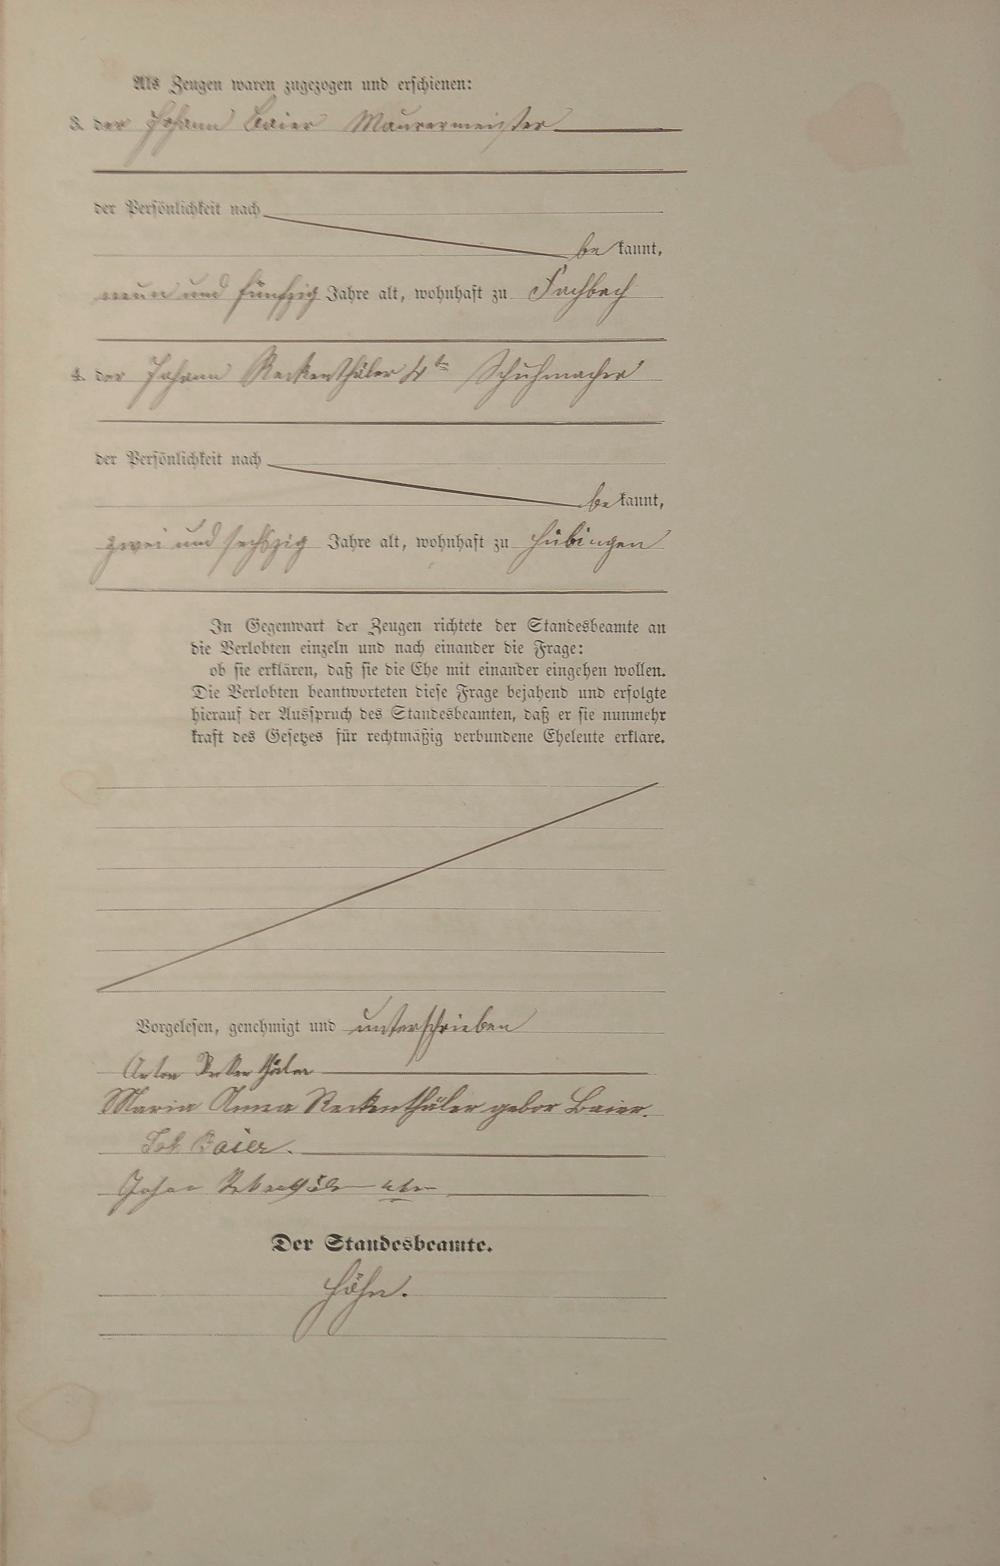 Als Zeugen waren zugezogen und erschienen:
3. der Johann Baier Maurermeister
der Persönlichkeit nach
be kannt,
neun und fünfzig Jahre alt, wohnhaft zu Fachbach
4. der Johann Reckenthäler 4te Schuhmacher
der Persönlichkeit nach
be kannt,
zwei und sechszig Jahre alt, wohnhaft zu Hübingen
In Gegenwart der Zeugen richtete der Standesbeamte an
die Verlobten einzeln und nach einander die Frage:
ob sie erklären, daß sie die Ehe mit einander eingehen wollen.
Die Verlobten beantworteten diese Frage bejahend und erfolgte
hierauf der Ausspruch des Standesbeamten, daß er sie nunmehr
kraft des Gesetzes für rechtmäßig verbundene Eheleute erkläre.
Vorgelesen, genehmigt und unterschrieben
Anton Reckenthäler
Maria Anna Reckenthäler gebor Baier.
Joh. Baier.
Johan Reckenthäler
Der Standesbeamte.
Höhn.